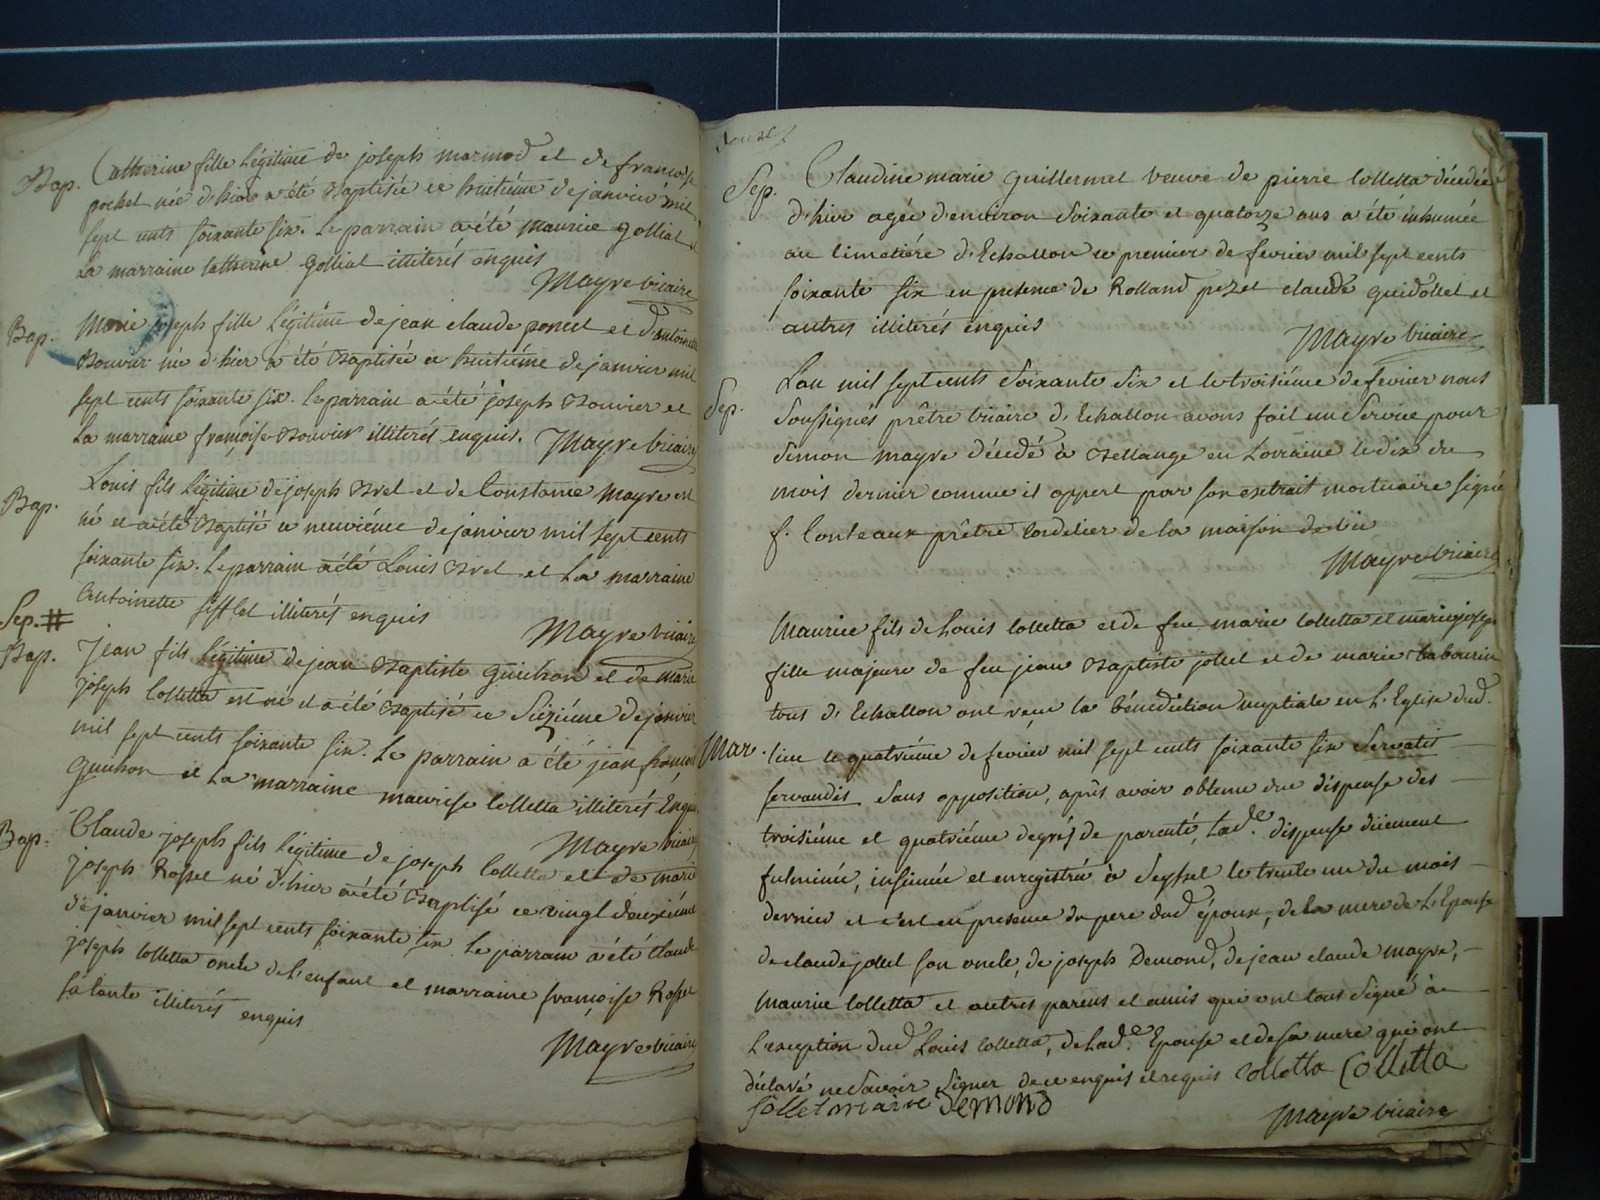 Bap. Catherine fille légitime de joseph marmod et de françoise
pochet née d'hier a été Baptisée ce huitiéme de janvier mil
sept cents soixante six. Le parrain a été maurice golliat et
La marraine Catherine golliat illiterés enquis
Mayre vicaire
Bap. Marie joseph fille légitime de jean claude poncet et d'antoinette
Bouvier née d'hier a été Baptisée ce huitiéme de janvier mil
sept cents soixante six. le parrain a été joseph Bouvier et
La marraine françoise Bouvier illiterés enquis. Mayre vicaire
Bap. Louis fils légitime de joseph Brel et de Constance Mayre est
né et a été Baptisé ce neuviéme de janvier mil sept cents
soixante six. Le parrain a été Louis Brel et La marraine
antoinette sifflet illiterés enquis
Mayre vicaire
Sep. #
Bap. Jean fils légitime de jean Baptiste guichon et de marie
joseph Colletta est né et a été Baptisé ce Siziéme de janvier
mil sept cents soixante six. Le parrain a été jean françois
guichon et La marraine maurise Colletta illiterés Enquis
Mayre vicaire
Bap. Claude joseph fils légitime de joseph Colletta et de marie
joseph Rosset né d'hier a été Baptisé ce vingt deuxiéme
de janvier mil sept cents soixante six. Le parrain a été Claude
joseph Colletta oncle de l'enfant et marraine françoise Rosset
sa tante illiterés enquis
Mayre vicaire
douze
Sep. Claudine marie guillermet veuve de pierre Colletta décédée
d'hier agée d'environ Soixante et quatorze ans a été inhumée
au Cimetiére d'Echallon ce premier de fevrier mil sept cents
soixante six en presence de Rolland pezet claude guidollet et
autres illiterés enquis
Mayre vicaire
Sep. L'an mil sept cents Soixante Six et le troisiéme de fevrier nous
Soussignés prêtre vicaire d'Echallon avons fait un Service pour
Simon mayre décédé à Bettange en Lorraine le dix du
mois dernier comme il appert par son extrait mortuaire signé
f. Conteaux prêtre Cordelier de la maison de
Mayre vicaire
Maurice fils de Louis Colletta et de feue marie Colletta et marie joseph
fille majeure de feu jean Baptiste jollet et de marie tabourin
tous d'Echallon ont reçu la bénédiction nuptiale en L'Eglise dud.
Mar. lieu ce quatriéme de fevrier mil sept cents soixante six Servatis
servandis Sans opposition, aprés avoir obtenu une dispense des
troisiéme et quatriéme degrés de parenté, lad.e dispense düement
fulminée, insinuée et enregistrée à Seyssel le trente un du mois
dernier et c'est en presence du pere dud. époux, de la mere de L'Epouse
de claude jollet son oncle, de joseph Demond, de jean claude mayre,
Maurice Colletta et autres parens et amis qui ont tous signé à
L'exception dud. Louis Colletta, de Lad.e Epouse et de sa mere qui ont
déclaré ne Savoir Signer de ce enquis et requis Colletta Colletta
jollet maire demond
Mayre vicaire